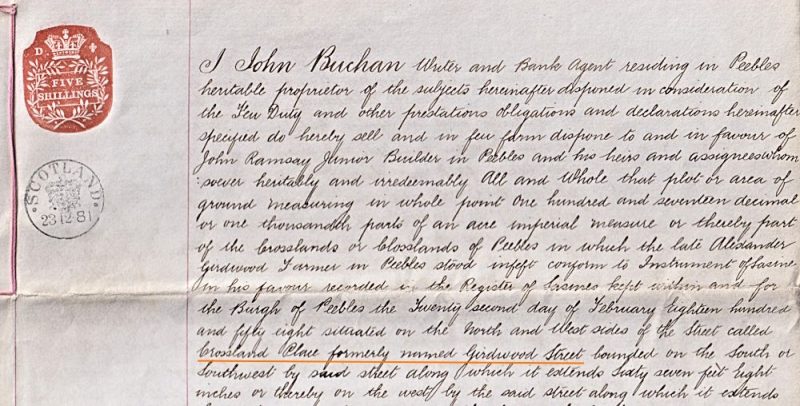 D 4
FIVE
SHILLINGS
SCOTLAND
23·12·81
I John Buchan Writer and Bank Agent residing in Peebles
heritable proprietor of the subjects hereinafter disponed in consideration of
the Feu Duty and other prestations obligations and declarations hereinafter
specified do hereby sell and in feu farm dispone to and in favour of
John Ramsay Junior Builder in Peebles and his heirs and assignees whom
soever heritably and irredeemably All and Whole that plot or area of
ground measuring in whole point One hundred and seventeen decimal
or one thousandth parts of an acre imperial measure or thereby part
of the Crosslands or Closslands of Peebles in which the late Alexander
Girdwood Farmer in Peebles stood infeft conform to Instrument of Sasine
in his favour recorded in the Register of Sasines kept within and for
the Burgh of Peebles the Twenty second day of February Eighteen hundred
and fifty eight situated on the North and West sides of the Street called
Crossland Place formerly named Girdwood Street bounded on the South or
Southwest by said street along which it extends Sixty seven feet Eight
inches or thereby on the west by the said street along which it extends